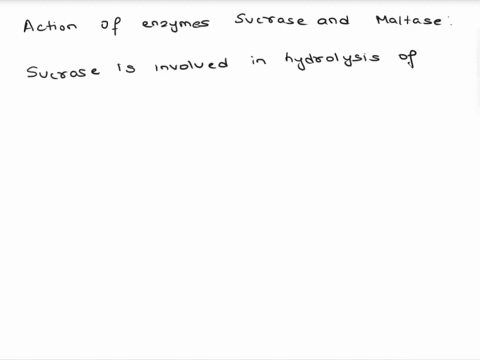 Action of enzymes Sucrase and Maltase:
Sucrase is involved in hydrolysis of